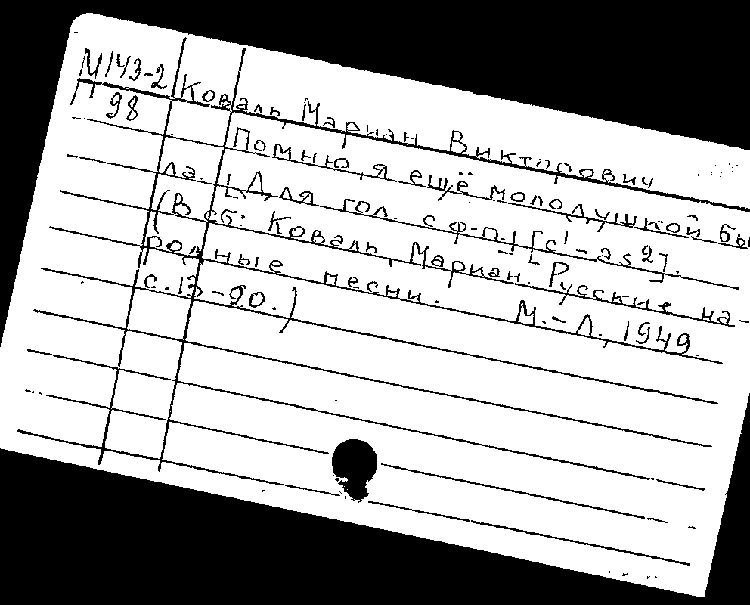 М143-2 Коваль, Мариан Викторович
П 98
Помню, я ещё молодушкой бы
ла. [Для гол. с ф-п.] [c¹-as²].
(В сб: Коваль, Мариан. Русские на-
родные песни. М.-Л., 1949
с.13-20.)